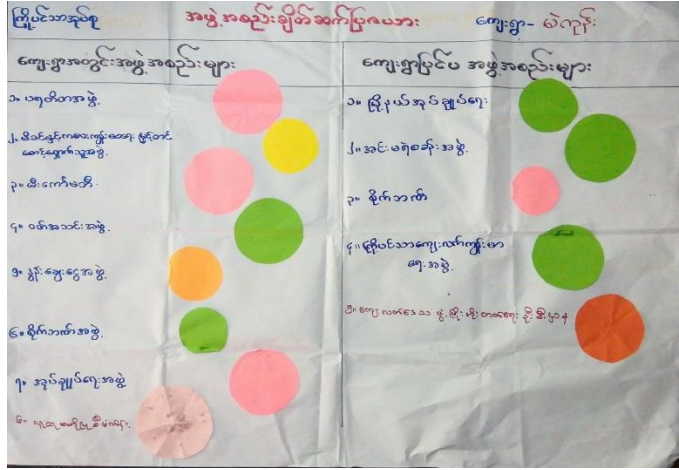 ကြိုပင်သာအုပ်စု အဖွဲ့အစည်းချိတ်ဆက်ပြဇယား ကျေးရွာ- မဲကုန်း
ကျေးရွာအတွင်းအဖွဲ့အစည်းများ
၁။ ပရဟိတအဖွဲ့
၂။ မိခင်နှင့်ကလေးကျန်းမာရေး မြှင့်တင်
စောင့်ရှောက်သူအဖွဲ့
၃။ မီးကော်မတီ
၄။ ဝတ်အသင်းအဖွဲ့
၅။ နွန်းချေးငွေအဖွဲ့
၆။ စိုက်ဘဏ်အဖွဲ့
၇။ အုပ်ချုပ်ရေးအဖွဲ့
၈။
ကျေးရွာပြင်ပ အဖွဲ့အစည်းများ
၁။ မြို့နယ်အုပ်ချုပ်ရေး
၂။ အင်းမရဲစခန်းအဖွဲ့
၃။ စိုက်ဘဏ်
၄။ ကြိုပင်သာကျေးလက်ကျန်းမာ
ရေးအဖွဲ့
၅။ ကျေးလက်ဒေသ ဖွံ့ဖြိုးတိုးတက်ရေး